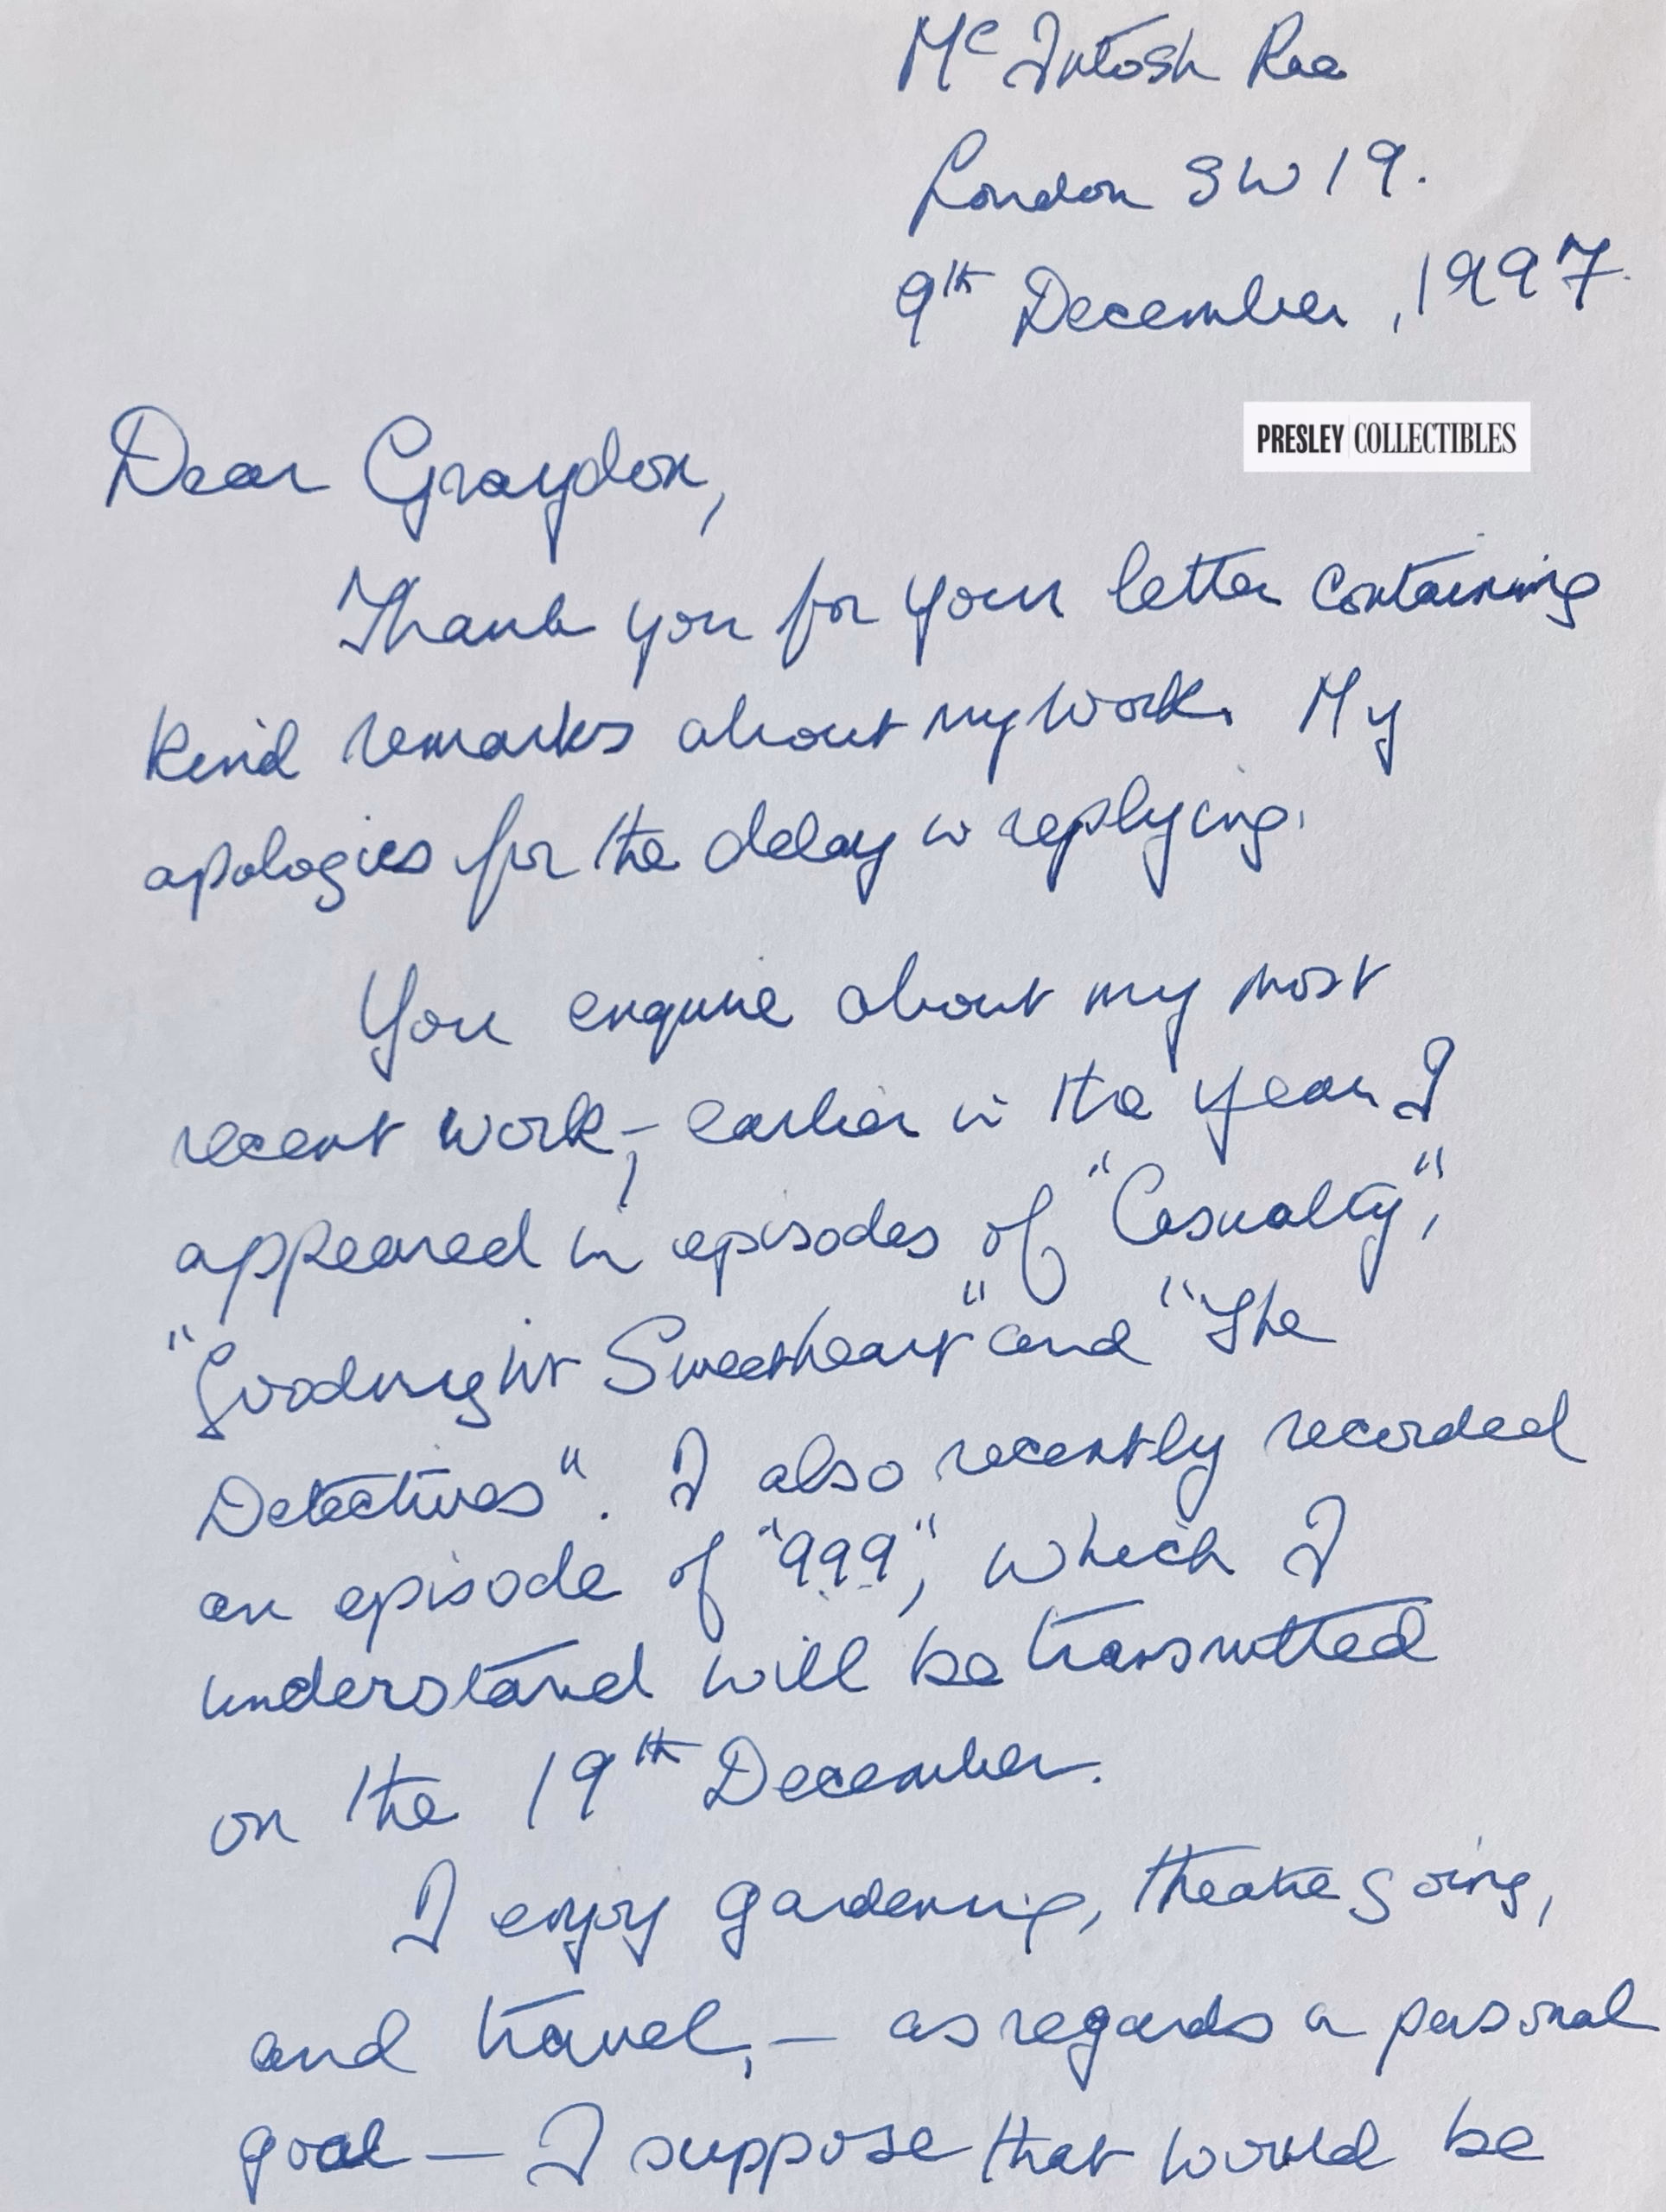 Mc Intosh Rae
London SW19.
9th December, 1997.
PRESLEY COLLECTIBLES
Dear Graydon,
Thank you for your letter containing
kind remarks about my work. My
apologies for the delay in replying.
You enquire about my most
recent work,- earlier in the year I
appeared in episodes of "Casualty",
"Goodnight Sweetheart" and "The
Detectives". I also recently recorded
an episode of "999", which I
understand will be transmitted
on the 19th December.
I enjoy gardening, theatre going,
and travel, - as regards a personal
goal - I suppose that would be